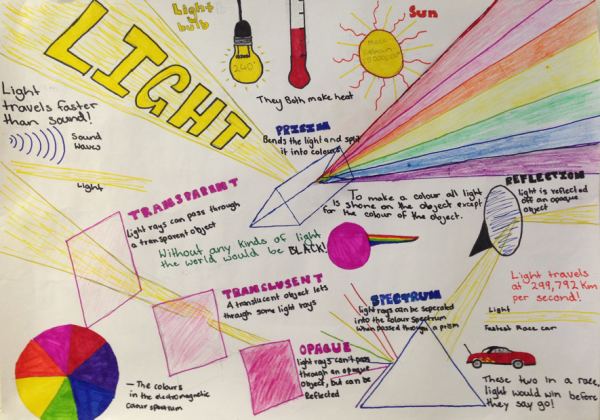 Light
bulb
240°
Sun
LIGHT
They Both make heat
Light
travels faster
than sound!
Sound
Waves
Light
PRISIM
Bends the light and split
it into colours
TRANSPARENT
Light rays can pass through
a transparent object
Without any kinds of light
the world would be BLACK!
To make a colour all light
is shone on the object except
for the colour of the object.
REFLECTION
light is reflected
off an opaque
object
Light travels
at 299,792 Km
per second!
Light
Fastest Race car
These two in a race,
light would win before
they say go!
TRANCLUSENT
A translucent object lets
through some light rays
SPECTRUM
light rays can be seperated
into the colour Spectrum
When passed through a prism
OPAQUE
light rays can't pass
through an opaque
Object, but can be
Reflected
— The colours
in the electromagnetic
colour spectrum